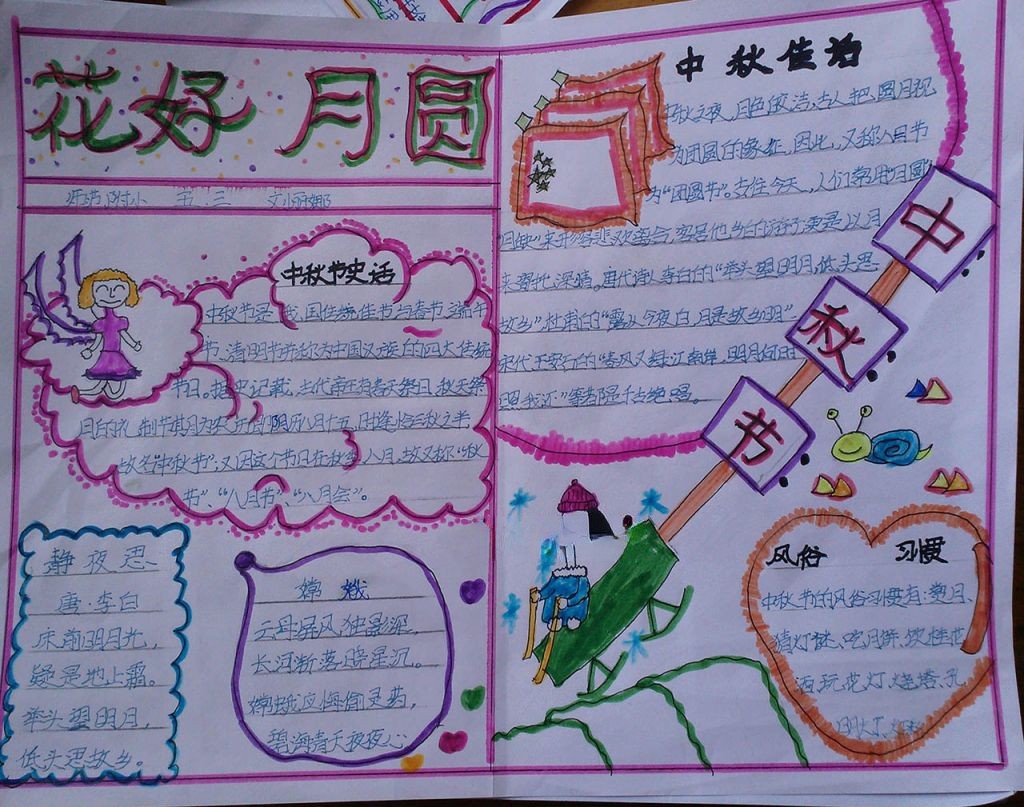 花好月圆
师范附小 五.三
中秋节史话
中秋节是我国传统佳节与春节、端午
节、清明节并称为中国汉族的四大传统
节日。据史记载,古代帝王有春天祭日、秋天祭
月的礼制节期为农历八月十五,时逢恰三秋之半
故名“中秋节”;又因这个节日在秋季八月,故又称“秋
节”、“八月节”、“八月会”。
静夜思
唐·李白
床前明月光,
疑是地上霜。
举头望明月,
低头思故乡。
嫦娥
云母屏风独影深,
长河渐落晓星沉。
嫦娥应悔偷灵药,
碧海青天夜夜心
中秋佳话
中秋之夜,月色皎洁,古人把圆月视
为团圆的象征,因此,又称八月节
为“团圆节”。古往今来,人们常用“月圆”
“月缺”来形容悲欢离合,客居他乡的游子,更是以月
来寄托深情。唐代诗人李白的“举头望明月,低头思
故乡”,杜甫的“露从今夜白,月是故乡明”
宋代王安石的“春风又绿江南岸,明月何时
照我还”等诗句都是千古绝唱。
中秋节
风俗 习惯
中秋节的风俗习惯有:赏月、
猜灯谜、吃月饼、饮桂花
酒、玩花灯、烧塔、孔
明灯